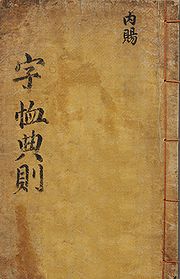 內賜
字恤典則